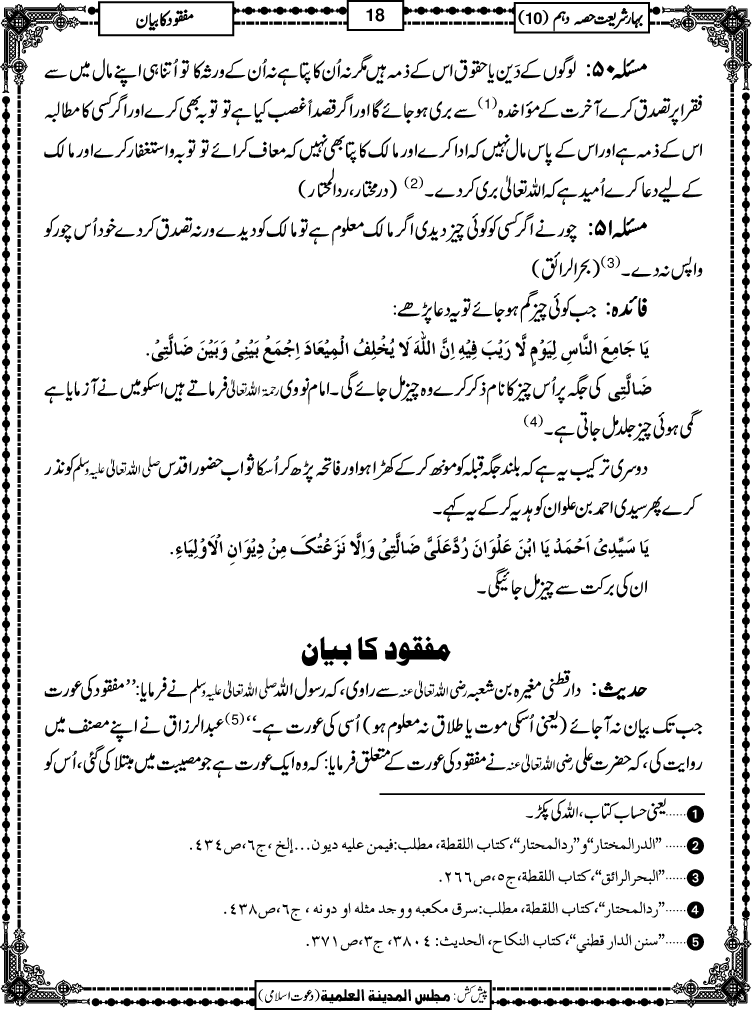 بہارِ شریعت حصہ دہم (10)
18
مفقود کا بیان
مسئلہ ۵۰: لوگوں کے دَین یا حقوق اس کے ذمہ ہیں مگر نہ اُن کا پتا ہے نہ اُن کے ورثہ کا تو اُتنا ہی اپنے مال میں سے
فقرا پر تصدق کرے آخرت کے مؤاخذہ (1) سے بری ہو جائے گا اور اگر قصداً غصب کیا ہے تو توبہ بھی کرے اور اگر کسی کا مطالبہ
اس کے ذمہ ہے اور اس کے پاس مال نہیں کہ ادا کرے اور مالک کا پتا بھی نہیں کہ معاف کرائے تو توبہ و استغفار کرے اور مالک
کے لیے دعا کرے اُمید ہے کہ اللہ تعالیٰ بری کر دے۔ (2) (درمختار، ردالمحتار)
مسئلہ ۵۱: چور نے اگر کسی کو کوئی چیز دیدی اگر مالک معلوم ہے تو مالک کو دیدے ورنہ تصدق کر دے خود اُس چور کو
واپس نہ دے۔ (3) (بحرالرائق)
فائدہ: جب کوئی چیز گم ہو جائے تو یہ دعا پڑھے:
یَا جَامِعَ النَّاسِ لِیَوْمٍ لَّا رَیْبَ فِیْهِ اِنَّ اللّٰهَ لَا یُخْلِفُ الْمِیْعَادَ اِجْمَعْ بَیْنِیْ وَبَیْنَ ضَالَّتِیْ.
ضَالَّتِی کی جگہ پر اُس چیز کا نام ذکر کرے وہ چیز مل جائے گی۔ امام نووی رحمۃ اللہ تعالیٰ فرماتے ہیں اسکو میں نے آزمایا ہے
گمی ہوئی چیز جلد مل جاتی ہے۔ (4)
دوسری ترکیب یہ ہے کہ بلند جگہ قبلہ کو مونھ کر کے کھڑا ہو اور فاتحہ پڑھ کر اُسکا ثواب حضور اقدس صلی اللہ تعالیٰ علیہ وسلم کو نذر
کرے پھر سیدی احمد بن علوان کو ہدیہ کر کے یہ کہے۔
یَا سَیِّدِیْ اَحْمَدُ یَا ابْنَ عَلْوَانَ رُدَّعَلَیَّ ضَالَّتِیْ وَاِلَّا نَزَعْتُکَ مِنْ دِیْوَانِ الْاَوْلِیَاءِ.
ان کی برکت سے چیز مل جائیگی۔
مفقود کا بیان
حدیث: دارقطنی مغیرہ بن شعبہ رضی اللہ تعالیٰ عنہ سے راوی، کہ رسول اللہ صلی اللہ تعالیٰ علیہ وسلم نے فرمایا: ''مفقود کی عورت
جب تک بیان نہ آ جائے (یعنی اُسکی موت یا طلاق نہ معلوم ہو) اُسی کی عورت ہے۔'' (5) عبدالرزاق نے اپنے مصنف میں
روایت کی، کہ حضرت علی رضی اللہ تعالیٰ عنہ نے مفقود کی عورت کے متعلق فرمایا: کہ وہ ایک عورت ہے جو مصیبت میں مبتلا کی گئی، اُس کو
1 ......یعنی حساب کتاب، اللہ کی پکڑ۔
2 ......''الدرالمختار''و''ردالمحتار''، کتاب اللقطة، مطلب: فیمن علیه دیون...إلخ، ج٦، ص٤٣٤.
3 ......''البحرالرائق''، کتاب اللقطة، ج٥، ص٢٦٦.
4 ......''ردالمحتار''، کتاب اللقطة، مطلب: سرق مکعبه ووجد مثله او دونه، ج٦، ص٤٣٨.
5 ......''سنن الدار قطني''، کتاب النکاح، الحدیث: ٣٨٠٤، ج٣، ص٣٧١.
پیش کش: مجلس المدینة العلمیة (دعوت اسلامی)